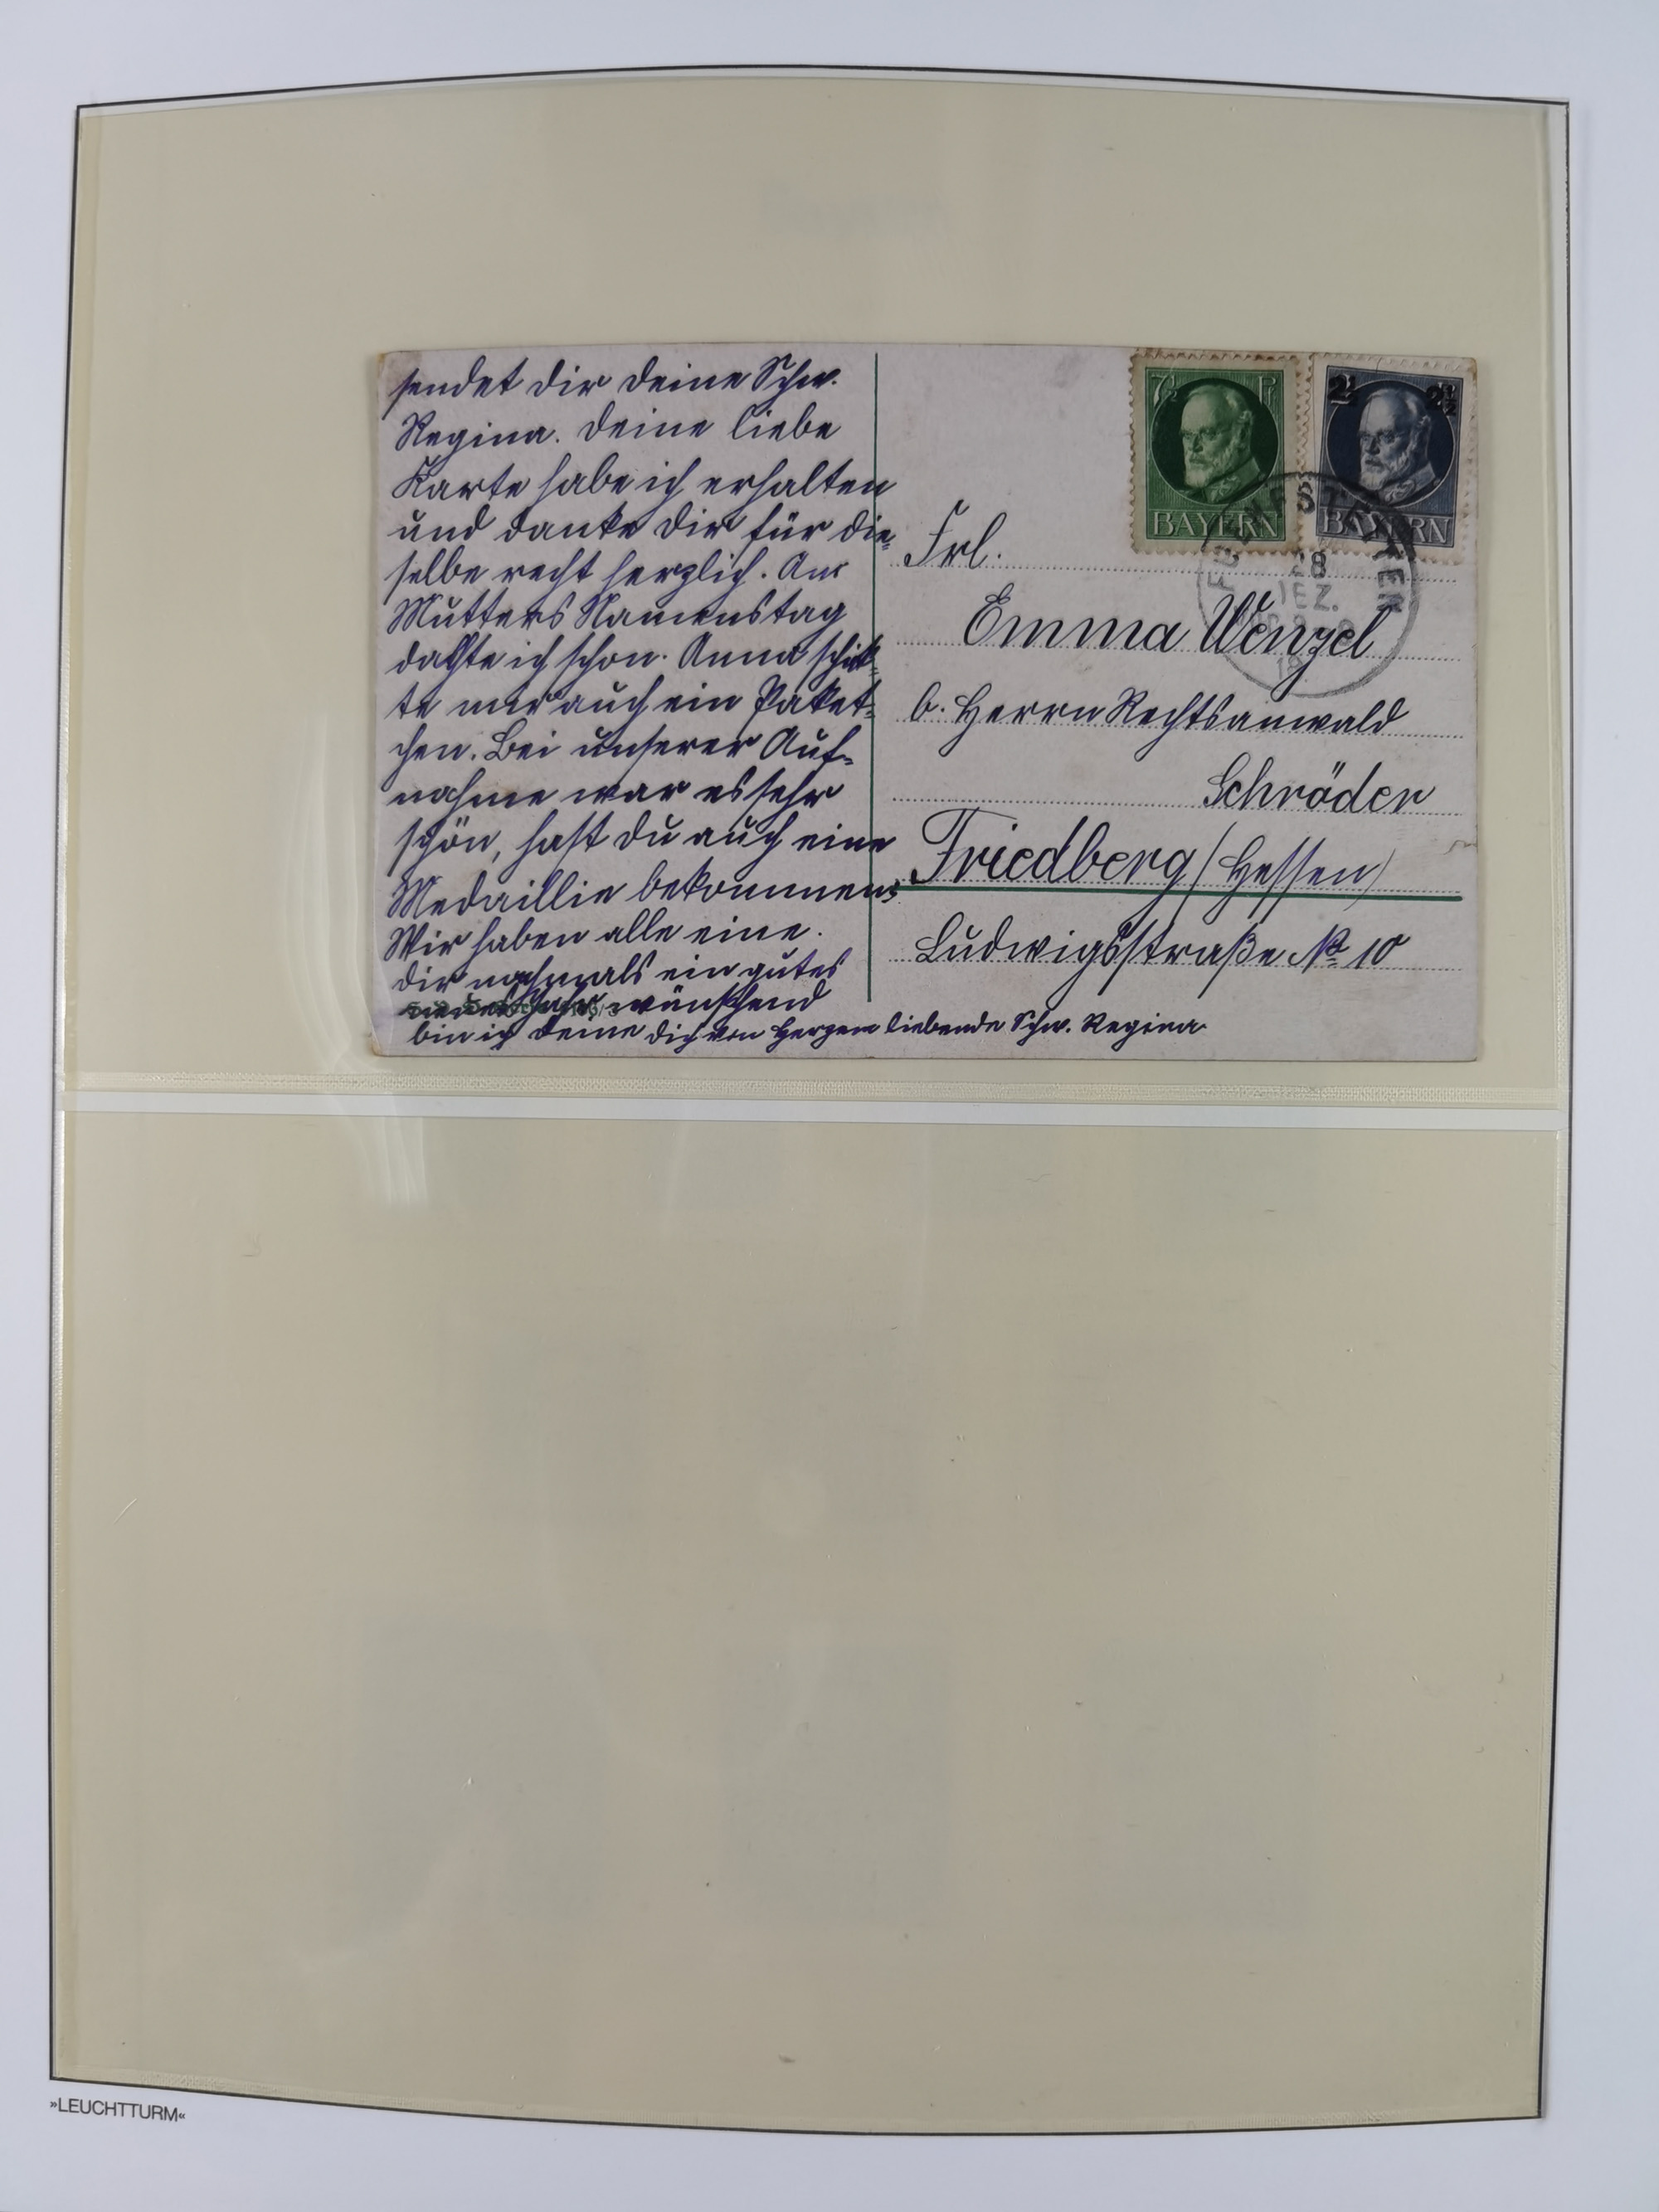 sendet dir deine Schw.
Regina. Deine liebe
Karte habe ich erhalten
und danke dir für die-
selbe recht herzlich. An
Mutters Namenstag
dachte ich schon. Anna schick-
te mir auch ein Paket-
chen. Bei unserer Auf-
nahme war es sehr
schön, hast du auch eine
Medaillie bekommen?
Wir haben alle eine.
Dir nochmals ein gutes
neues Jahr wünschend
bin ich deine dich von Herzen liebende Schw. Regina
7½ P
BAYERN
2½ 2½
BAYERN
28
DEZ.
Frl.
Emma Wenzel
b. Herrn Rechtsanwald
Schröder
Friedberg (Hessen)
Ludwigsstraße No 10
»LEUCHTTURM«